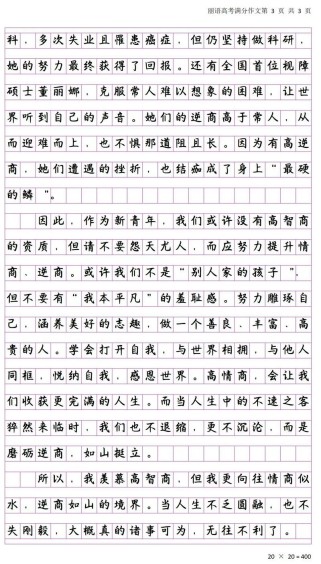 丽语高考满分作文第 3 页 共 3 页
科，多次失业且罹患癌症，但仍坚持做科研，
她的努力最终获得了回报。还有全国首位视障
硕士董丽娜，克服常人难以想象的困难，让世
界听到自己的声音。她们的逆商高于常人，从
而迎难而上，也不惧那道阻且长。因为有高逆
商，她们遭遇的挫折，也结痂成了身上“最硬
的鳞”。
因此，作为新青年，我们或许没有高智商
的资质，但请不要怨天尤人，而应努力提升情
商、逆商。或许我们不是“别人家的孩子”，
但不要有“我本平凡”的羞耻感。努力雕琢自
己，涵养美好的志趣，做一个善良、丰富、高
贵的人。学会打开自我，与世界相拥，与他人
同框，悦纳自我，感恩世界。高情商，会让我
们收获更完满的人生。而当人生中的不速之客
猝然来临时，我们也不退缩，更不沉沦，而是
磨砺逆商，如山挺立。
所以，我羡慕高智商，但我更向往情商似
水，逆商如山的境界。当人生不乏圆融，也不
失刚毅，大概真的诸事可为，无往不利了。
20 × 20 = 400